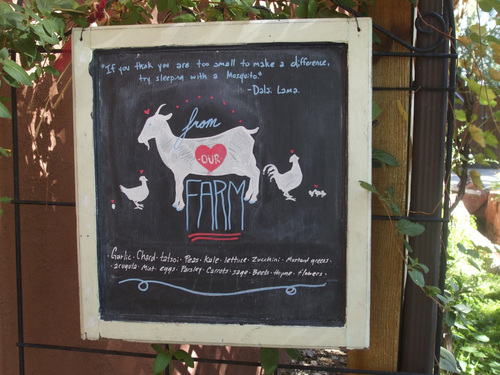 "If you think you are too small to make a difference,
try sleeping with a Mosquito."
-Dalai Lama
from
·OUR·
FARM
·Garlic·Chard·tatsoi·Peas·Kale·lettuce·Zucchini·Mustard greens·
·arugula·Mint·eggs·Parsley·Carrots·sage·Beets·thyme·flowers·